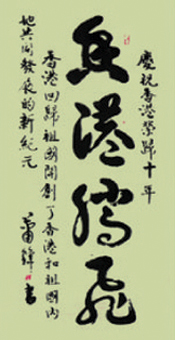 慶祝香港榮歸十年
香港騰飛
香港回歸祖國開創了香港和祖國內
地共同發展的新紀元
書